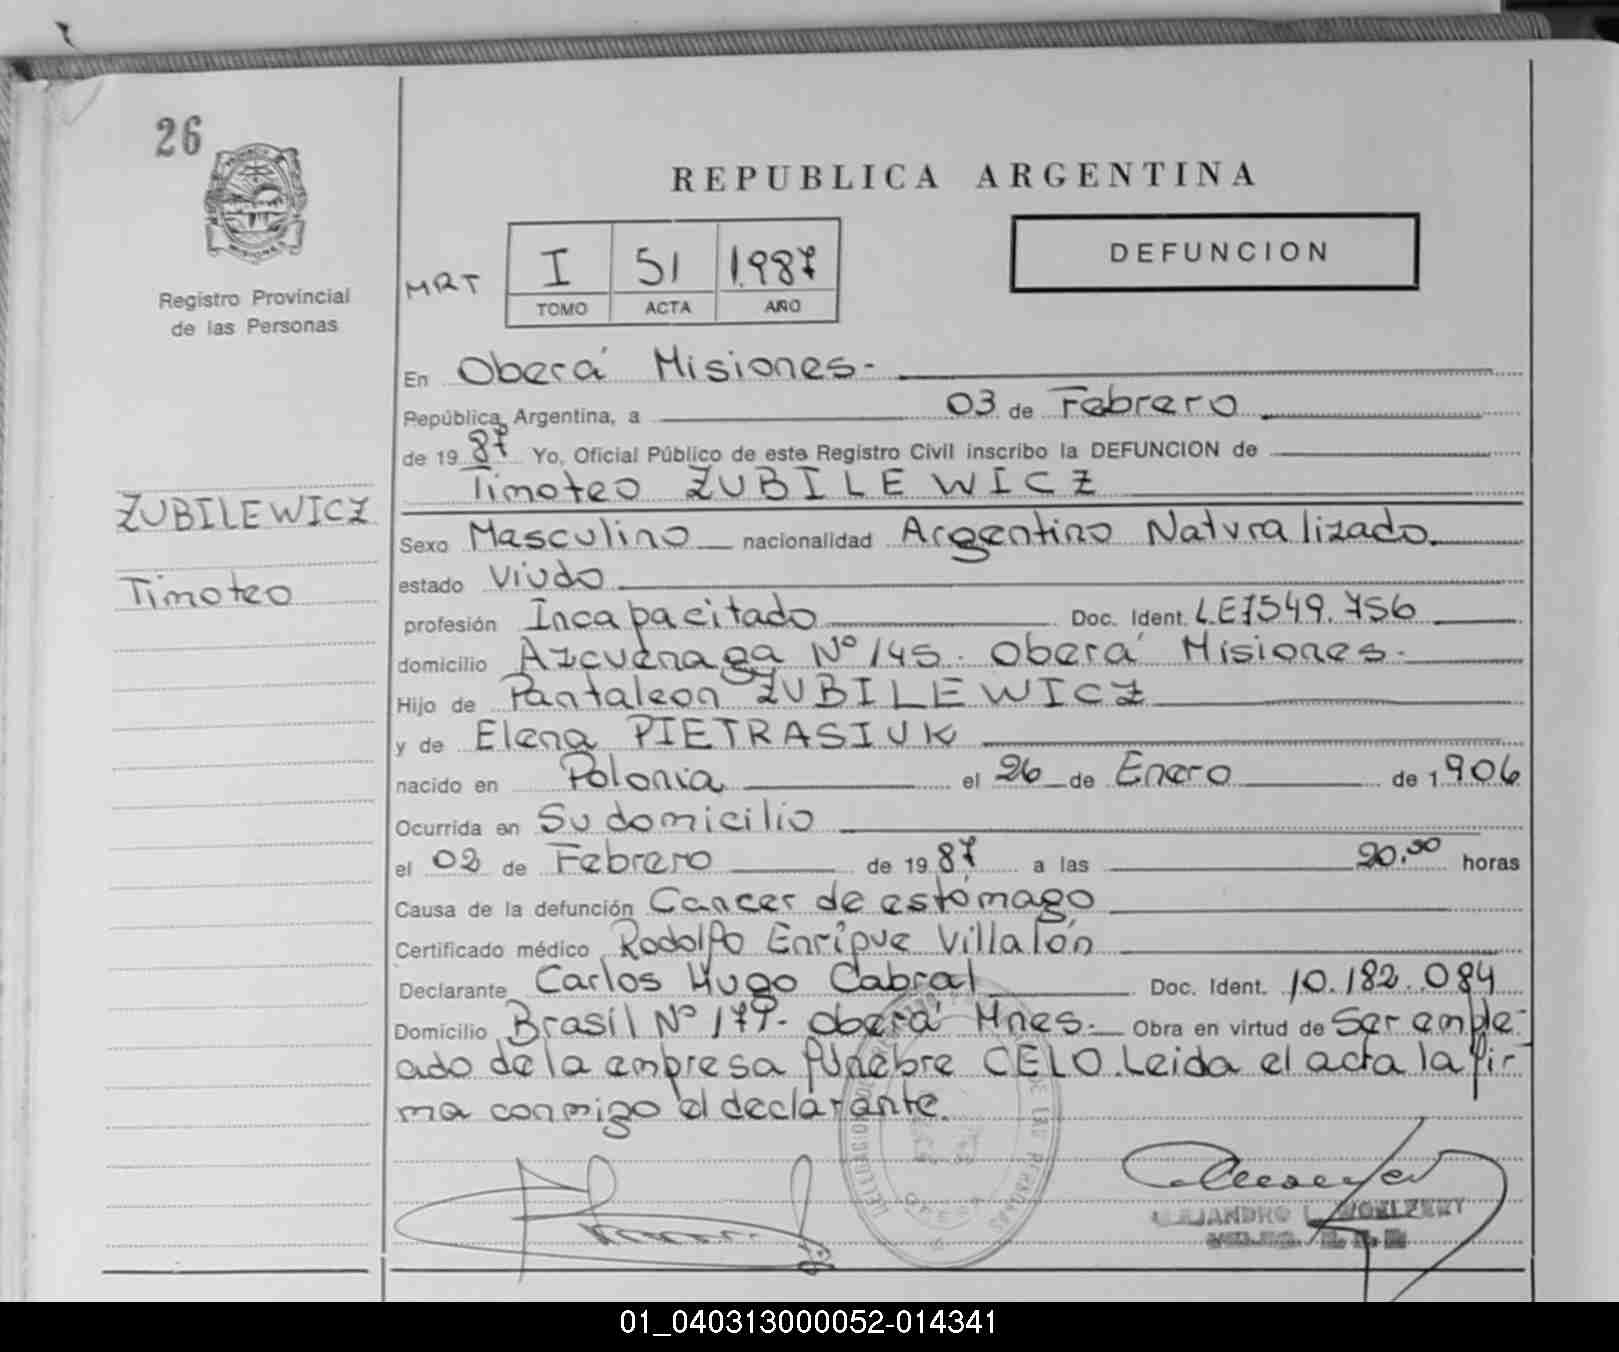 26
Registro Provincial
de las Personas
ZUBILEWICZ
Timoteo
REPUBLICA ARGENTINA
MRT
I 51 1.987
TOMO ACTA AÑO
DEFUNCION
En Oberá Misiones.-
República Argentina, a 03 de Febrero
de 19 87 Yo, Oficial Público de este Registro Civil inscribo la DEFUNCION de
Timoteo ZUBILEWICZ
Sexo Masculino nacionalidad Argentino Naturalizado.
estado Viudo
profesión Incapacitado Doc. Ident. LE7549.756
domicilio Azcuenaga Nº 145. Oberá Misiones.
Hijo de Pantaleon ZUBILEWICZ
y de Elena PIETRASIUK
nacido en Polonia el 26 de Enero de 1.906
Ocurrida en Su domicilio
el 02 de Febrero de 19 87 a las 20.30 horas
Causa de la defunción Cancer de estómago
Certificado médico Rodolfo Enrique Villalón
Declarante Carlos Hugo Cabral Doc. Ident. 10.182.084
Domicilio Brasil Nº 177.- Oberá Mnes.- Obra en virtud de Ser emple-
ado de la empresa fúnebre CELO. Leida el acta la fir
ma conmigo el declarante.
DE LAS PERSONAS
ALEJANDRO L.
01_040313000052-014341